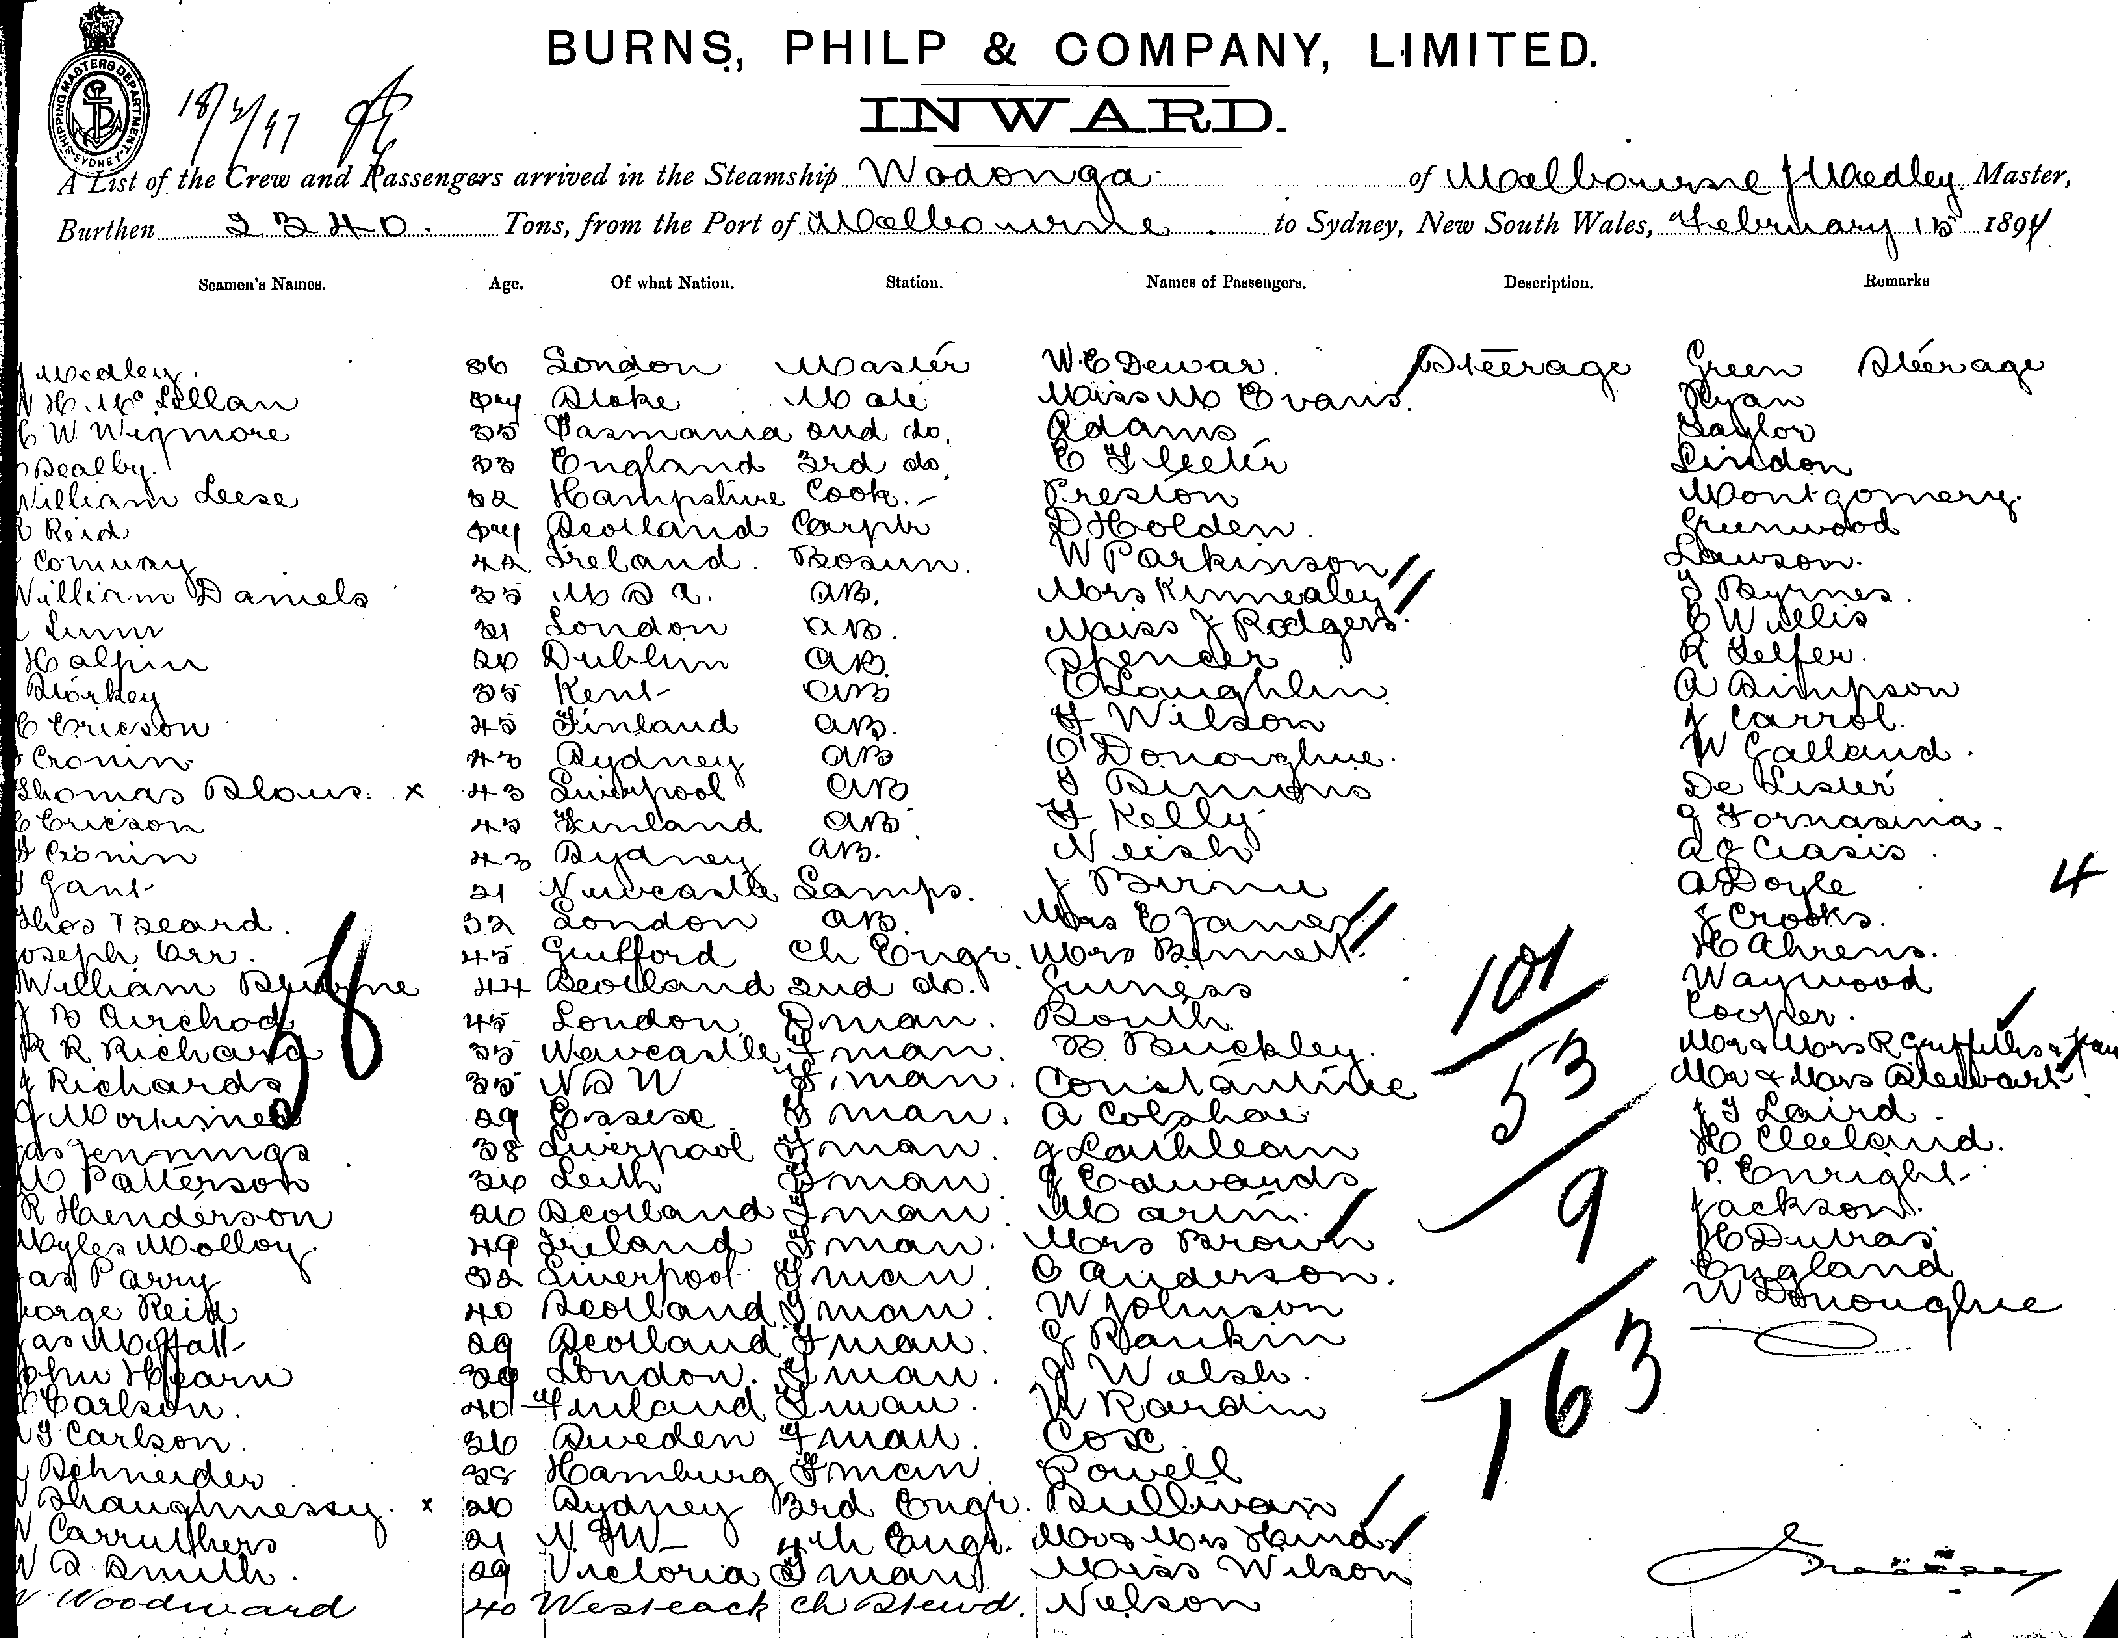 BURNS, PHILP & COMPANY, LIMITED.
INWARD.
SHIPPING MASTERS DEPARTMENT SYDNEY
18/2/97
A List of the Crew and Passengers arrived in the Steamship Wodonga of Melbourne J Medley Master,
Burthen 2340. Tons, from the Port of Melbourne. to Sydney, New South Wales, February 15 1897
Seamen's Names. Age. Of what Nation. Station. Names of Passengers. Description. Remarks
J Medley. 36 London Master W E Dewar. Steerage Green Steerage
H. McLellan Stoke Mate Miss M Evans. Ryan
C W Wigmore 35 Tasmania 2nd do. Adams Taylor
Sealby. 33 England 3rd do. Lindon
William Leese 32 Hampshire Cook. Preston Montgomery
Reid Scotland Carptr D Holden. Greenwood
Conway 42 Ireland. Bosun. W Parkinson Lawson.
William Daniels 35 U S A. AB. Mrs Kinnealey J Byrnes.
Lunn 31 London AB. Miss J Rodgers. C Willis
Halpin 26 Dublin AB. Spencer R Telfer.
Storkey 35 Kent AB O'Loughlin A Simpson
C Ericson 45 Finland AB. H Wilson J Carrol.
Cronin 43 Sydney AB O'Donoghue. W Galland.
Thomas x 43 Liverpool AB Simons De Lister
C Ericson 45 Finland AB H Kelly G Fornasina.
Cronin 43 Sydney AB. Neish
Gant 21 Newcastle Lamps. J Birnie A Doyle 4
Thos Beard. 32 London AB. Mrs E James J Crooks.
Joseph Orr. 45 Guilford Ch Engr. Mrs Bennett. H Ahrens.
William 44 Scotland 2nd do. Guiness Waywood
58
45 London Dman. Bouth Cooper.
101
R R Richard 35 Newcastle Fman. B. Buckley. Mr & Mrs R Griffiths &
J Richards 35 N S W Fman. Constantine Mr & Mrs Stewart
53
Mortimer 29 Essex Fman. A Colshae J T Laird.
Jas Jennings 38 Liverpool Fman. H Cleeland.
Patterson 36 Leith Fman J Edwards P. Enright
9
R Henderson 26 Scotland Fman Martin. Jackson.
Myles Molloy. 49 Ireland Fman. Mrs Brown H Dutras
Jas Parry 32 Liverpool Fman. C Anderson. England
George Reid 40 Scotland Fman. W Johnson W Donoughue
Jas Moffatt 29 Scotland Fman. G Rankin
John Hearn 39 London. Fman. J Walsh.
163
Carlson. 40 Finland Fman. W Rardin
Carlson. 36 Sweden Fman. Cox
Schneider 38 Hamburg Fman Powell
Shaughnessy. x 26 Sydney 3rd Engr. Sullivan
Carruthers 21 4th Engr. Mr & Mrs Hinds
W A Smith. 29 Victoria Fman Miss Wilson
Woodward 40 Ch Stewd. Nelson